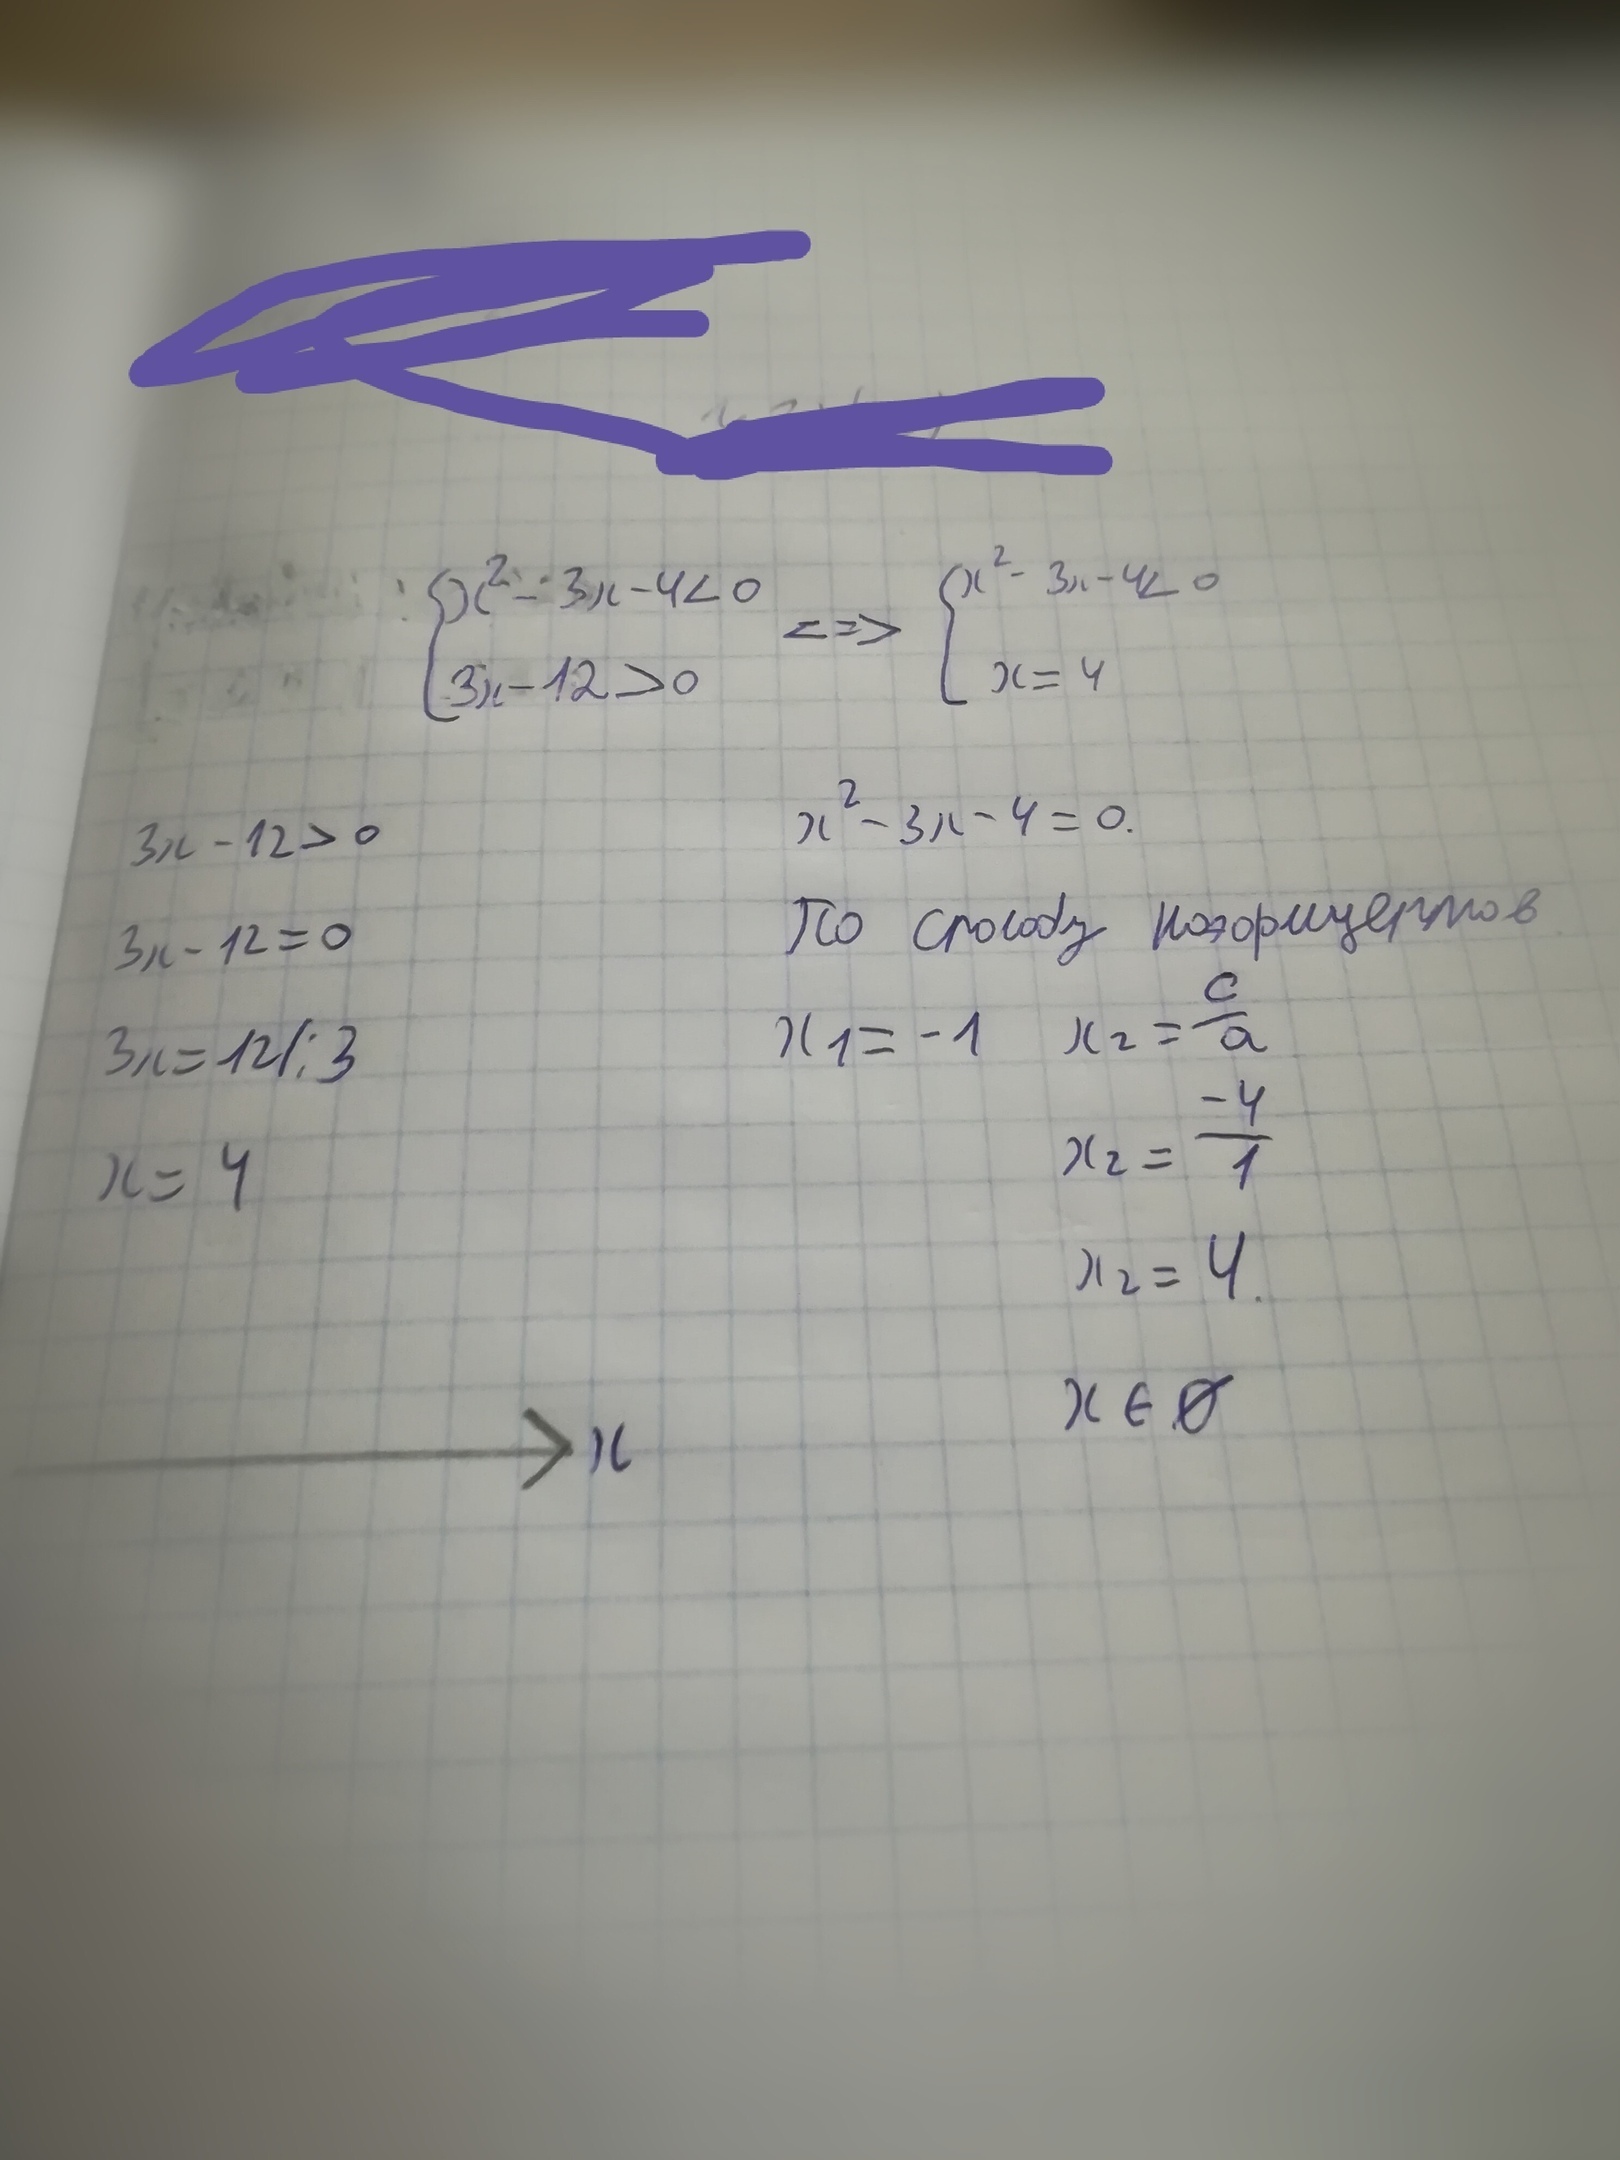 {x² - 3x - 4 < 0 <=> {x² - 3x - 4 < 0
{3x - 12 > 0 {x = 4
3x - 12 > 0
3x - 12 = 0
3x = 12 /: 3
x = 4
x² - 3x - 4 = 0.
По способу коэфициентов
x₁ = -1 x₂ = c/a
x₂ = -4/1
x₂ = 4.
x ∈ ∅
x